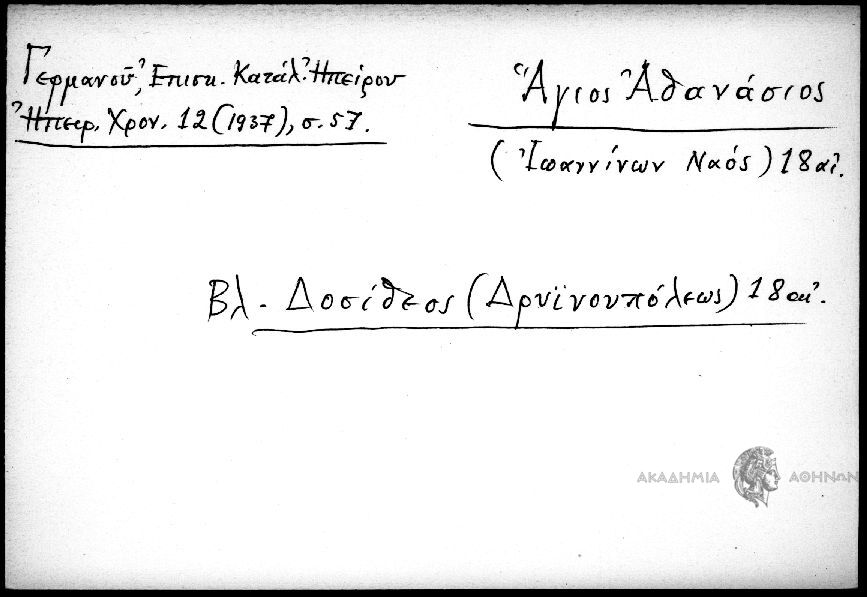 Γερμανοῦ, Ἐπισκ. Κατάλ. Ἠπείρου
Ἠπειρ. Χρον. 12 (1937), σ. 57.
Ἅγιος Ἀθανάσιος
(Ἰωαννίνων Ναός) 18 αἰ.
Βλ. Δοσίθεος (Δρυϊνουπόλεως) 18 αἰ.
ΑΚΑΔΗΜΙΑ ΑΘΗΝΩΝ